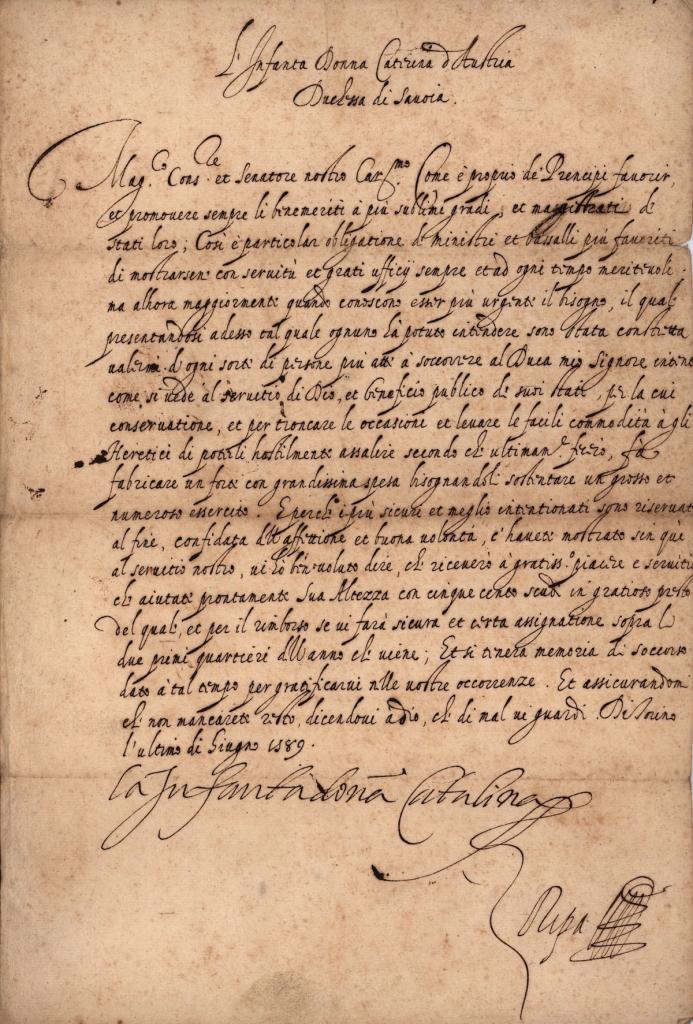 L'Infanta Donna Caterina d'Austria
Duchessa di Savoia.
Mag.co Cons.re et Senatore nostro Car.mo Come è proprio de Prencipi favorir,
et promovere sempre li benemeriti à più sublimi gradi, et maggistrati de
stati loro; Così è particolar obligatione de ministri et vassalli più favoriti
di mostrarsene con servitù et grati ufficij sempre et ad ogni tempo meritevoli
ma alhora maggiormente quando conoscono esser più urgente il bisogno, il quale
presentandosi adesso tal quale ognuno hà potuto intendere sono stata constretta
valermi d'ogni sorte di persone più atte à soccorrere al Duca mio Signore intento
come si vede al servitio di Dio, et beneficio publico de suoi stati, per la cui
conservatione, et per troncare le occasioni et levare le facili commodità à gli
Heretici di poterli hostilmente assalire secondo che ultimam.te fecero, fà
fabricare un forte con grandissima spesa bisognandoli sostentare un grosso et
numeroso essercito. E perche i più sicuri et meglio intentionati sono riservati
al fine, confidata dell'affettione et buona volontà, c'havete mostrato sin quì
al servitio nostro, vi hò ben voluto dire, che riceverò à gratiss.o piacere e servitio
che aiutate prontamente Sua Altezza con cinque cento scudi in gratioso presto
del quale, et per il rimborso se vi farà sicura et certa assignatione sopra le
due primi quartieri dell'anno che viene; Et si tenerà memoria di soccorso
dato à tal tempo per gratificarvi nelle vostre occorrenze. Et assicurandomi
che non mancarete resto, dicendovi adio, che di mal vi guardi. Di Torino
l'ultimo di Giugno 1589.
la Infanta doña Catalina
Ripa